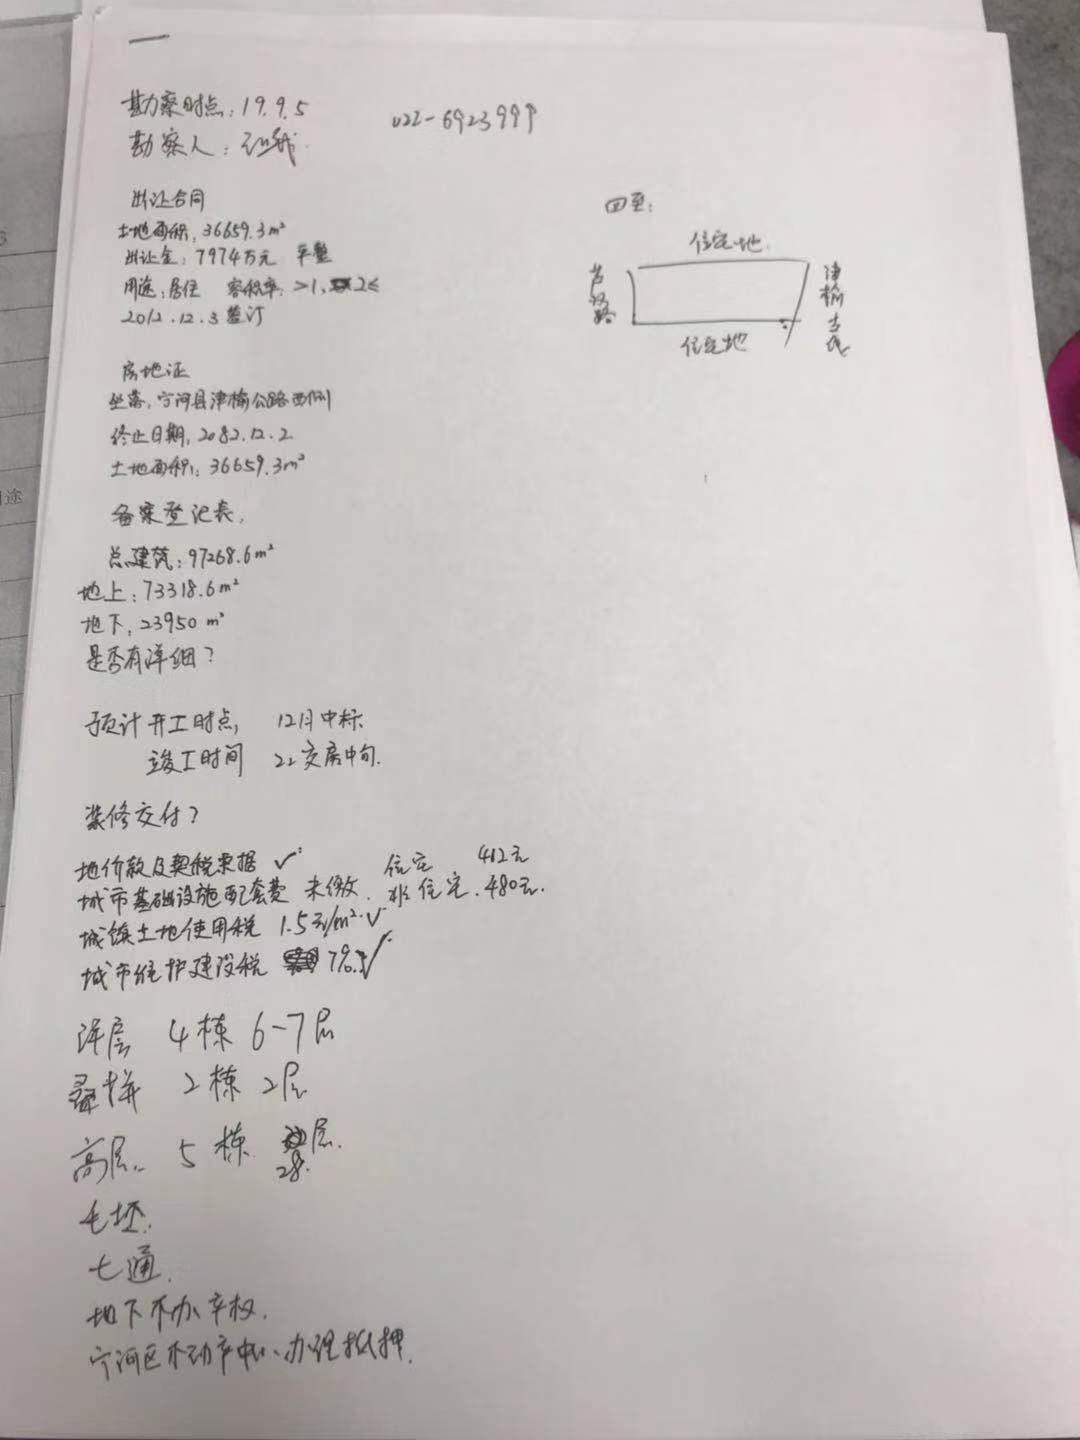 勘察时点：19.9.5
022-6923999
勘察人：
出让合同
土地面积：36659.3m²
出让金：7974万元 平整
用途：居住 容积率：>1，2≤
2012.12.3签订
四至：
住宅地
津榆支线
住宅地
房地证
坐落：宁河县津榆公路西侧
终止日期：2082.12.2
土地面积：36659.3m²
备案登记表：
总建筑：97268.6m²
地上：73318.6m²
地下：23950m²
是否有详细？
预计开工时点： 12月中标
竣工时间 22交房中旬.
装修交付？
地价款及契税票据 ✓
住宅 412元
城市基础设施配套费 未缴. 非住宅.480元.
城镇土地使用税 1.5元/m².✓
城市维护建设税 7%.✓
洋房 4栋 6-7层
叠拼 2栋 2层
高层. 5栋 28.层.
毛坯.
七通.
地下不办产权.
宁河区不动产中心办理抵押.